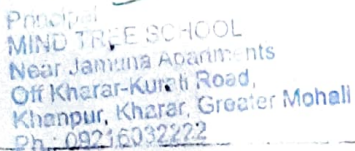 Principal
MIND TREE SCHOOL
Near Jamuna Apartments
Off Kharar-Kurali Road,
Khanpur, Kharar, Greater Mohali
Ph.: 09216032222